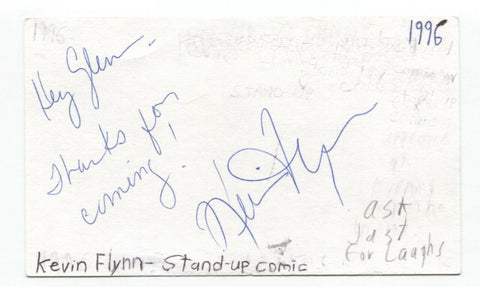 1996
Hey Glenn -
Thanks for
coming!
Kevin Flynn
ask
Just
for Laughs
Kevin Flynn- Stand-up comic